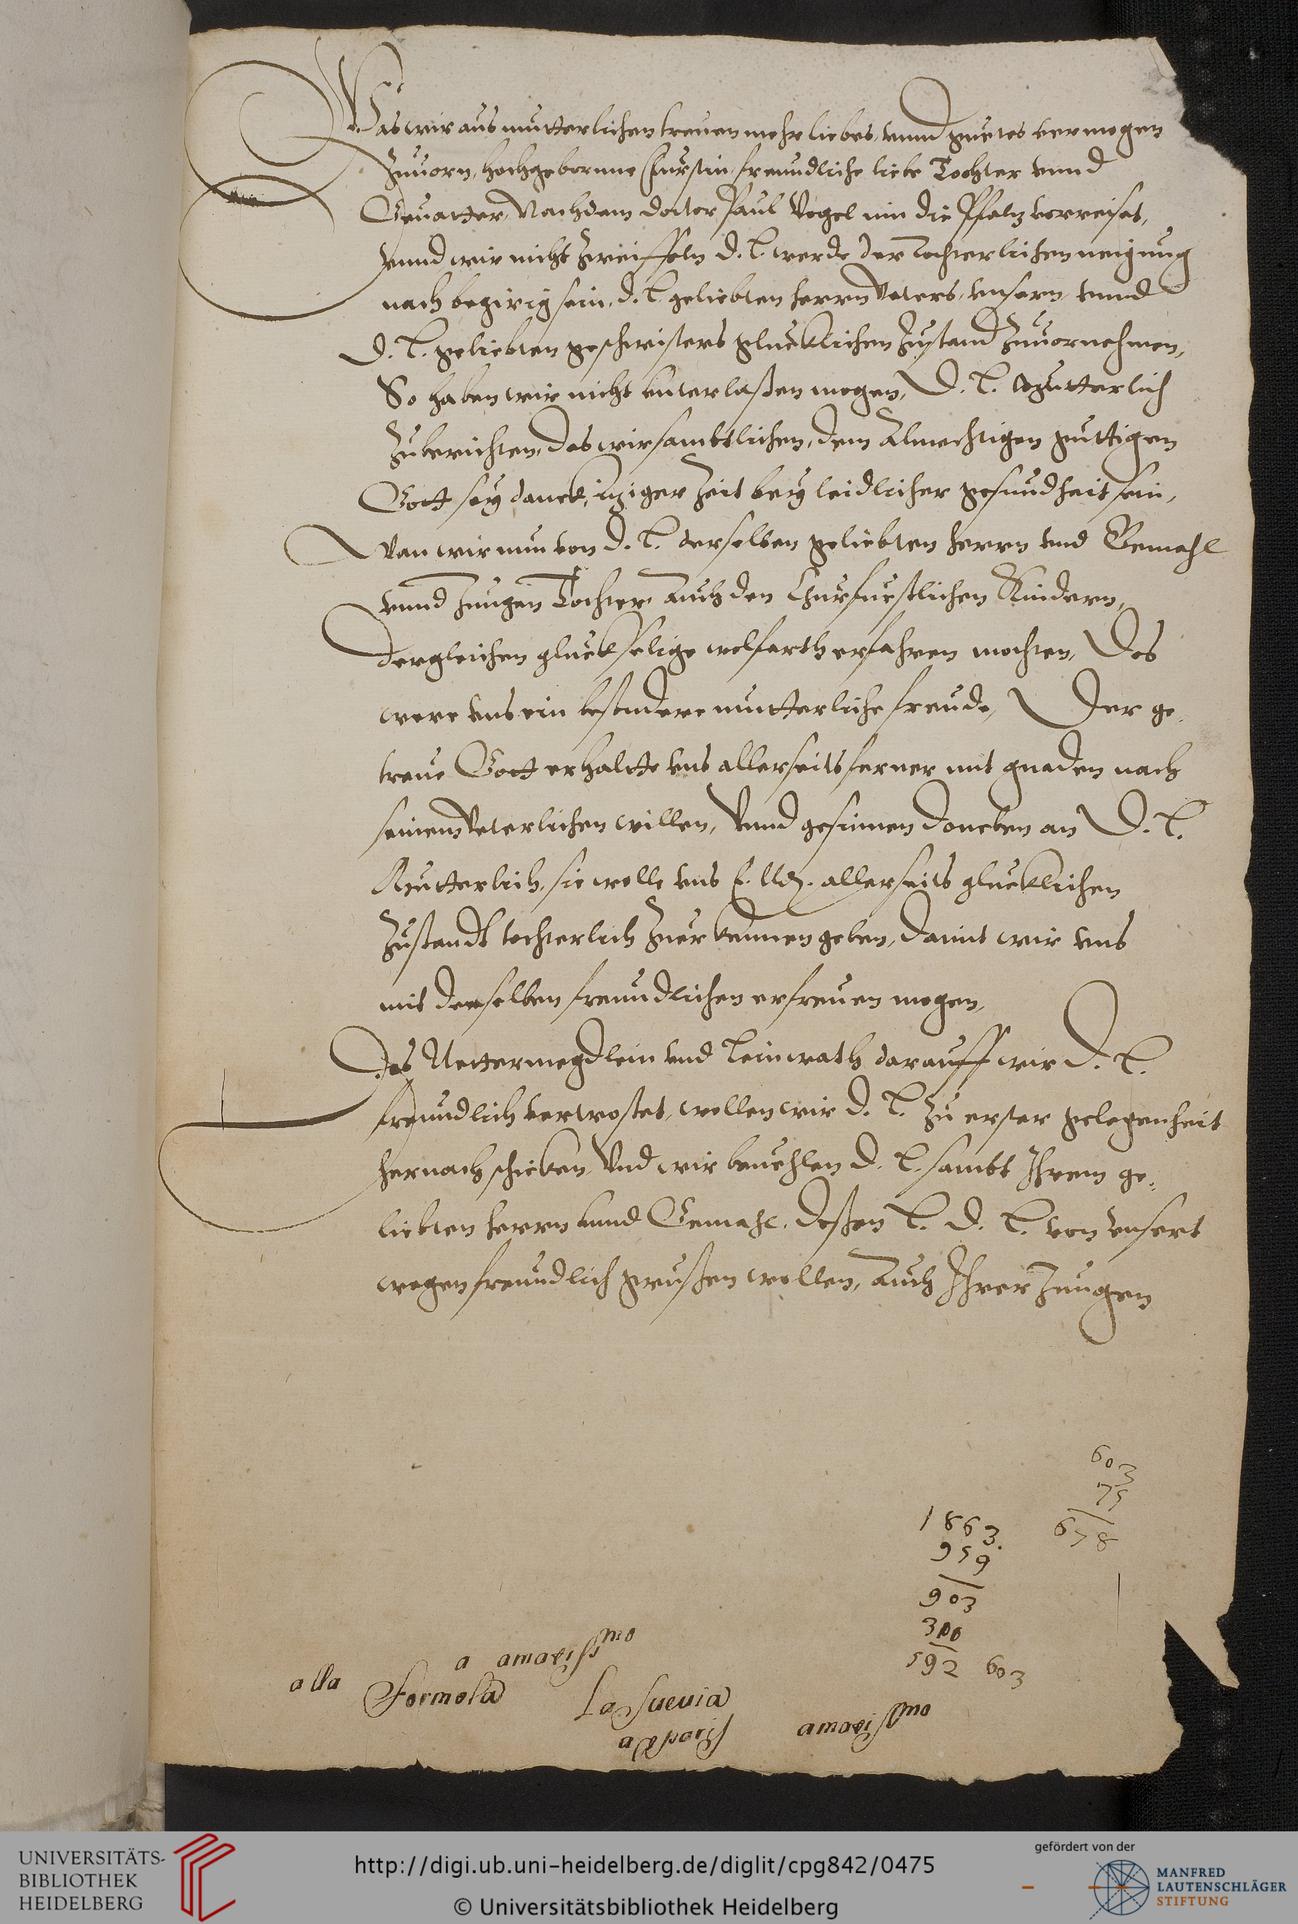 Was wir aus mutterlichen treuen mehr liebes, vnnd guetes vermogen
Zuuorn, hochgeborne Furstin, freundliche liebe Tochter vnnd
Geuatter, Nachdem doctor Paul Vogel inn die Pfaltz verreiset,
vnnd wir nicht zweiffeln D. L. werde der tochterlichen neigung
nach begirig sein, d. L. geliebten herrn Vaters, vnsern, vnnd
D. L. geliebten geschwisters gluecklichen Zustand Zuuornehmen,
So haben wir nicht vnterlaßen mogen, D. L. Mutterlich
Zuberichten, das wir sambtlichen, dem Almechtigen guttigen
Gott sey danck, itziger Zeit bey leidlicher gesundheit sein,
Wan wir nun von D. L. derselben geliebten herrn vnd Gemahl
vnnd Jungen Tochter, Auch den Churfurstlichen Kindern,
dergleichen gluckselige wolfarth erfahren mochten, Das
were vns ein besondere mutterliche freude, Der ge-
treue Gott erhalte vns allerseits ferner mit gnaden nach
seinem Veterlichen willen, Vnnd gesinnen doneben an D. L.
Mutterlich, sie wolle vns E. LLd. allerseits gluecklichen
Zustandt tochterlich Zuerkennen geben, damit wir vns
mit derselben freundlichen erfreuen mogen,
Das Nettermegdlein vnd Leinwath darauff wir D. L.
freundlich vertrostet, wollen wir D. L. Zu erster gelegenheit
hernach schicken, Vnd wir beuehlen D. L. sambt Ihrem ge-
liebten herrn vnnd Gemahl, deßen L. D. L. von vnsert
wegen freundlich grußen wollen, Auch Ihrer Jungen
603
75
678
1863.
959
903
300
592 603
a amariss mo
alla formosa La Suevia
amariss mo
http://digi.ub.uni-heidelberg.de/diglit/cpg842/0475
© Universitätsbibliothek Heidelberg
UNIVERSITÄTS-
BIBLIOTHEK
HEIDELBERG
gefördert von der
MANFRED
LAUTENSCHLÄGER
STIFTUNG